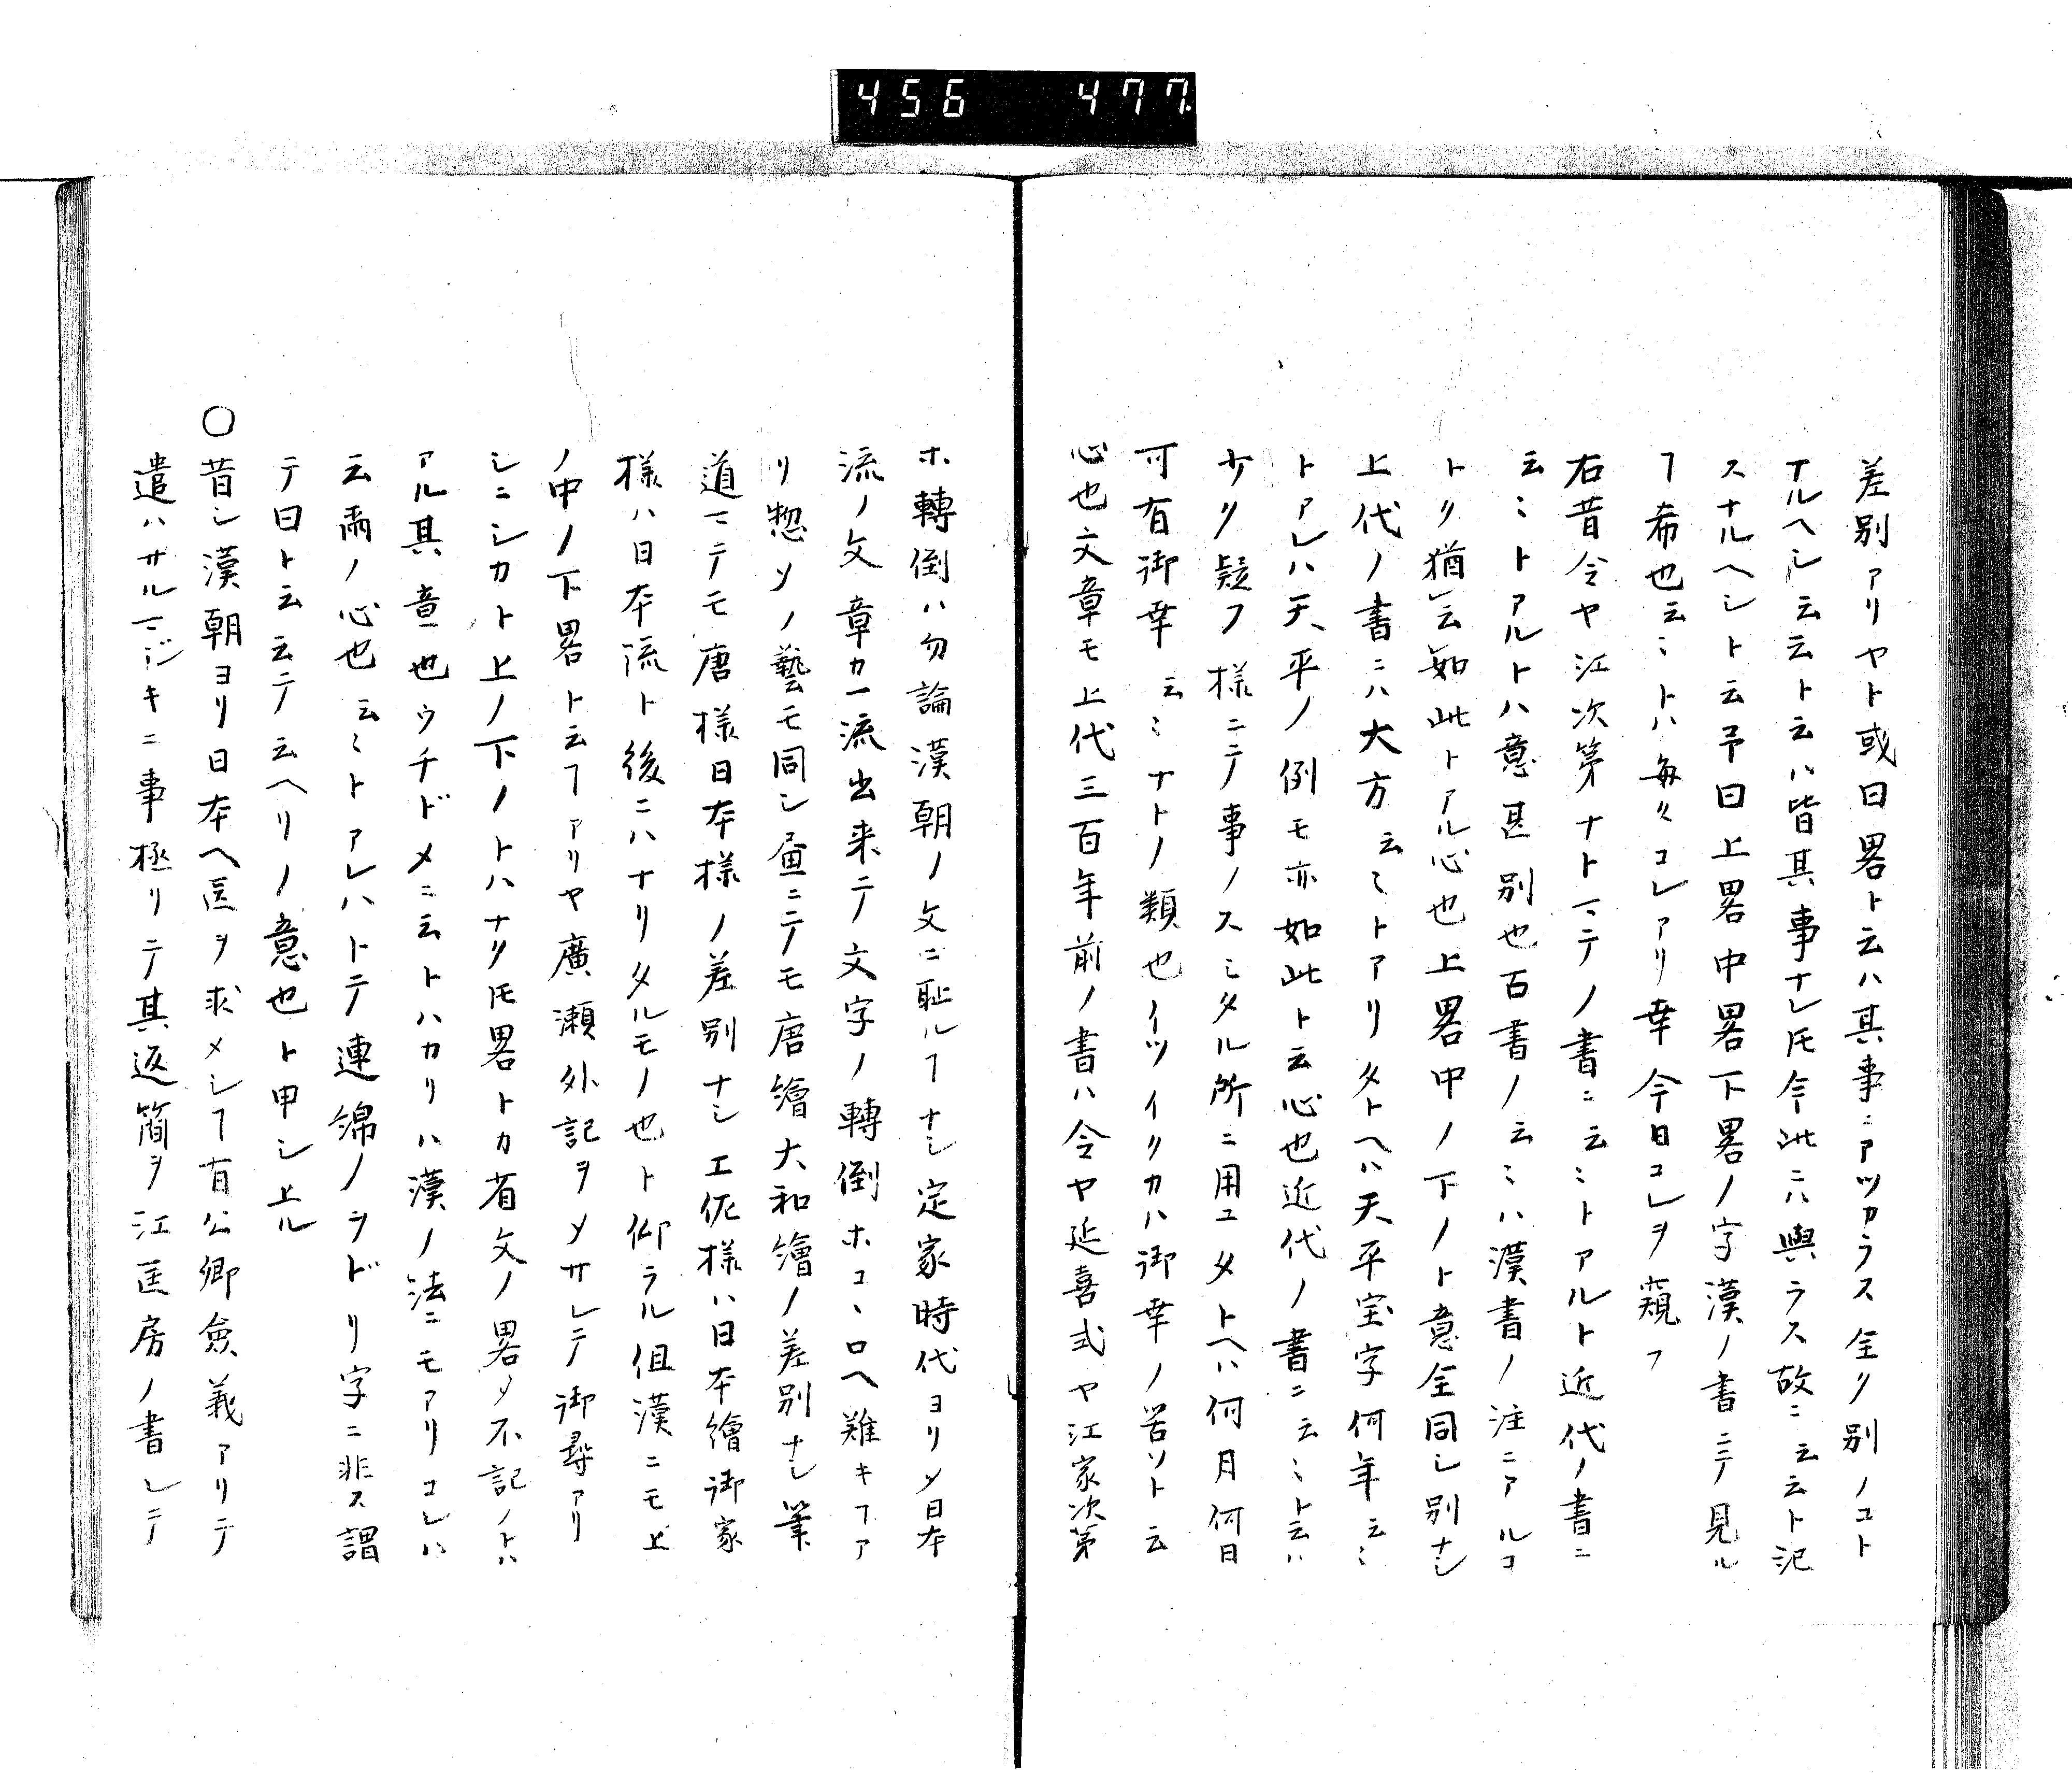 456 477
差別アリヤト或曰畧ト云ハ其事ニアツカラス全ク別ノコト
ナルヘシ云云ト云ハ皆其事ナレ𪜈今此ニハ與ラス故ニ云云ト記
スナルヘシト云予曰上畧中畧下畧ノ字漢ノ書ニテ見ル
ヿ希也云〻トハ毎〻コレアリ幸今日コレヲ窺フ
右昔令ヤ江次第ナトマテノ書ニ云〻トアルト近代ノ書ニ
云〻トアルトハ意甚別也古書ノ云〻ハ漢書ノ注ニアルコ
トク猶云如此トアル心也上畧中ノ下ノト意全同シ別ナシ
上代ノ書ニハ大方云〻トアリタトヘハ天平宝字何年云〻
トアレハ天平ノ例モ亦如此ト云心也近代ノ書ニ云〻ト云ハ
少ク疑フ様ニテ事ノスミタル所ニ用ユタトヘハ何月何日
可有御幸云〻ナトノ類也イツイクカハ御幸ノ筈ソト云
心也文章モ上代三百年前ノ書ハ令ヤ延喜式ヤ江家次第
ホ轉倒ハ勿論漢朝ノ文ニ恥ルヿナシ定家時代ヨリ〆日本
流ノ文章カ一流出来テ文字ノ轉倒ホコヽロヘ難キヿア
リ惣ソノ藝モ同シ画ニテモ唐繪大和繪ノ差別ナシ筆
道マテモ唐様日本様ノ差別ナシ土佐様ハ日本繪御家
様ハ日本流ト後ニハナリタルモノ也ト仰ラル但漢ニモ上
ノ中ノ下畧ト云ヿアリヤ廣瀬外記ヲメサレテ御尋アリ
シニシカト上ノ下ノトハナク𪜈畧トカ省文ノ畧タ不記ノトハ
アル其意也ウチドメニ云トハカリハ漢ノ法ニモアリコレハ
云爾ノ心也云〻トアレハトテ連綿ノヲドリ字ニ非ス謂
テ曰ト云云テ云ヘリノ意也ト申シ上ル
〇昔シ漢朝ヨリ日本ヘ医ヲ求メシヿ有公卿僉義アリテ
遣ハサルマジキニ事極リテ其返簡ヲ江匡房ノ書レテ